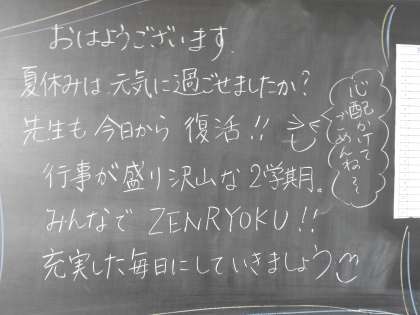 おはようございます.
夏休みは、元気に過ごせましたか?
先生も 今日から 復活!!
心配かけて
ごめんね〜
行事が盛り沢山な 2学期。
みんなで ZENRYOKU!!
充実した毎日にしていきましょう